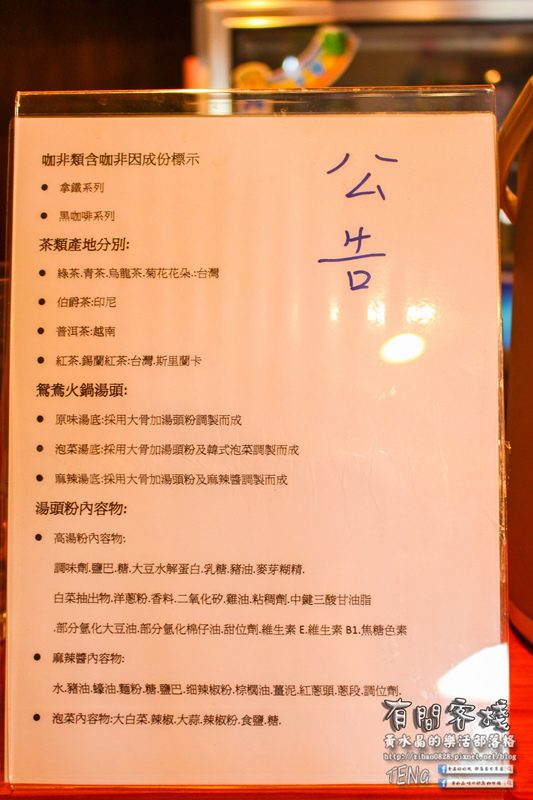 公告
咖非類含咖非因成份標示
● 拿鐵系列
● 黑咖啡系列
茶類產地分別:
● 綠茶.青茶.烏龍茶.菊花花朵.:台灣
● 伯爵茶:印尼
● 普洱茶:越南
● 紅茶.錫蘭紅茶:台灣.斯里蘭卡
鴛鴦火鍋湯頭:
● 原味湯底:採用大骨加湯頭粉調製而成
● 泡菜湯底:採用大骨加湯頭粉及韓式泡菜調製而成
● 麻辣湯底:採用大骨加湯頭粉及麻辣醬調製而成
湯頭粉內容物:
● 高湯粉內容物:
調味劑.鹽巴.糖.大豆水解蛋白.乳糖.豬油.麥芽糊精.
白菜抽出物.洋蔥粉.香料.二氧化矽.雞油.粘稠劑.中鍵三酸甘油脂
.部分氫化大豆油.部分氫化棉仔油.甜位劑.維生素 E.維生素 B1.焦糖色素
● 麻辣醬內容物:
水.豬油.蠔油.麵粉.糖.鹽巴.细辣椒粉.棕櫚油.薑泥.紅蔥頭.蔥段.調位劑.
● 泡菜內容物:大白菜.辣椒.大蒜.辣椒粉.食鹽.糖.
有間客棧
黃水晶的樂活部落格
http://zihan0828.pixnet.net/blog
TENG